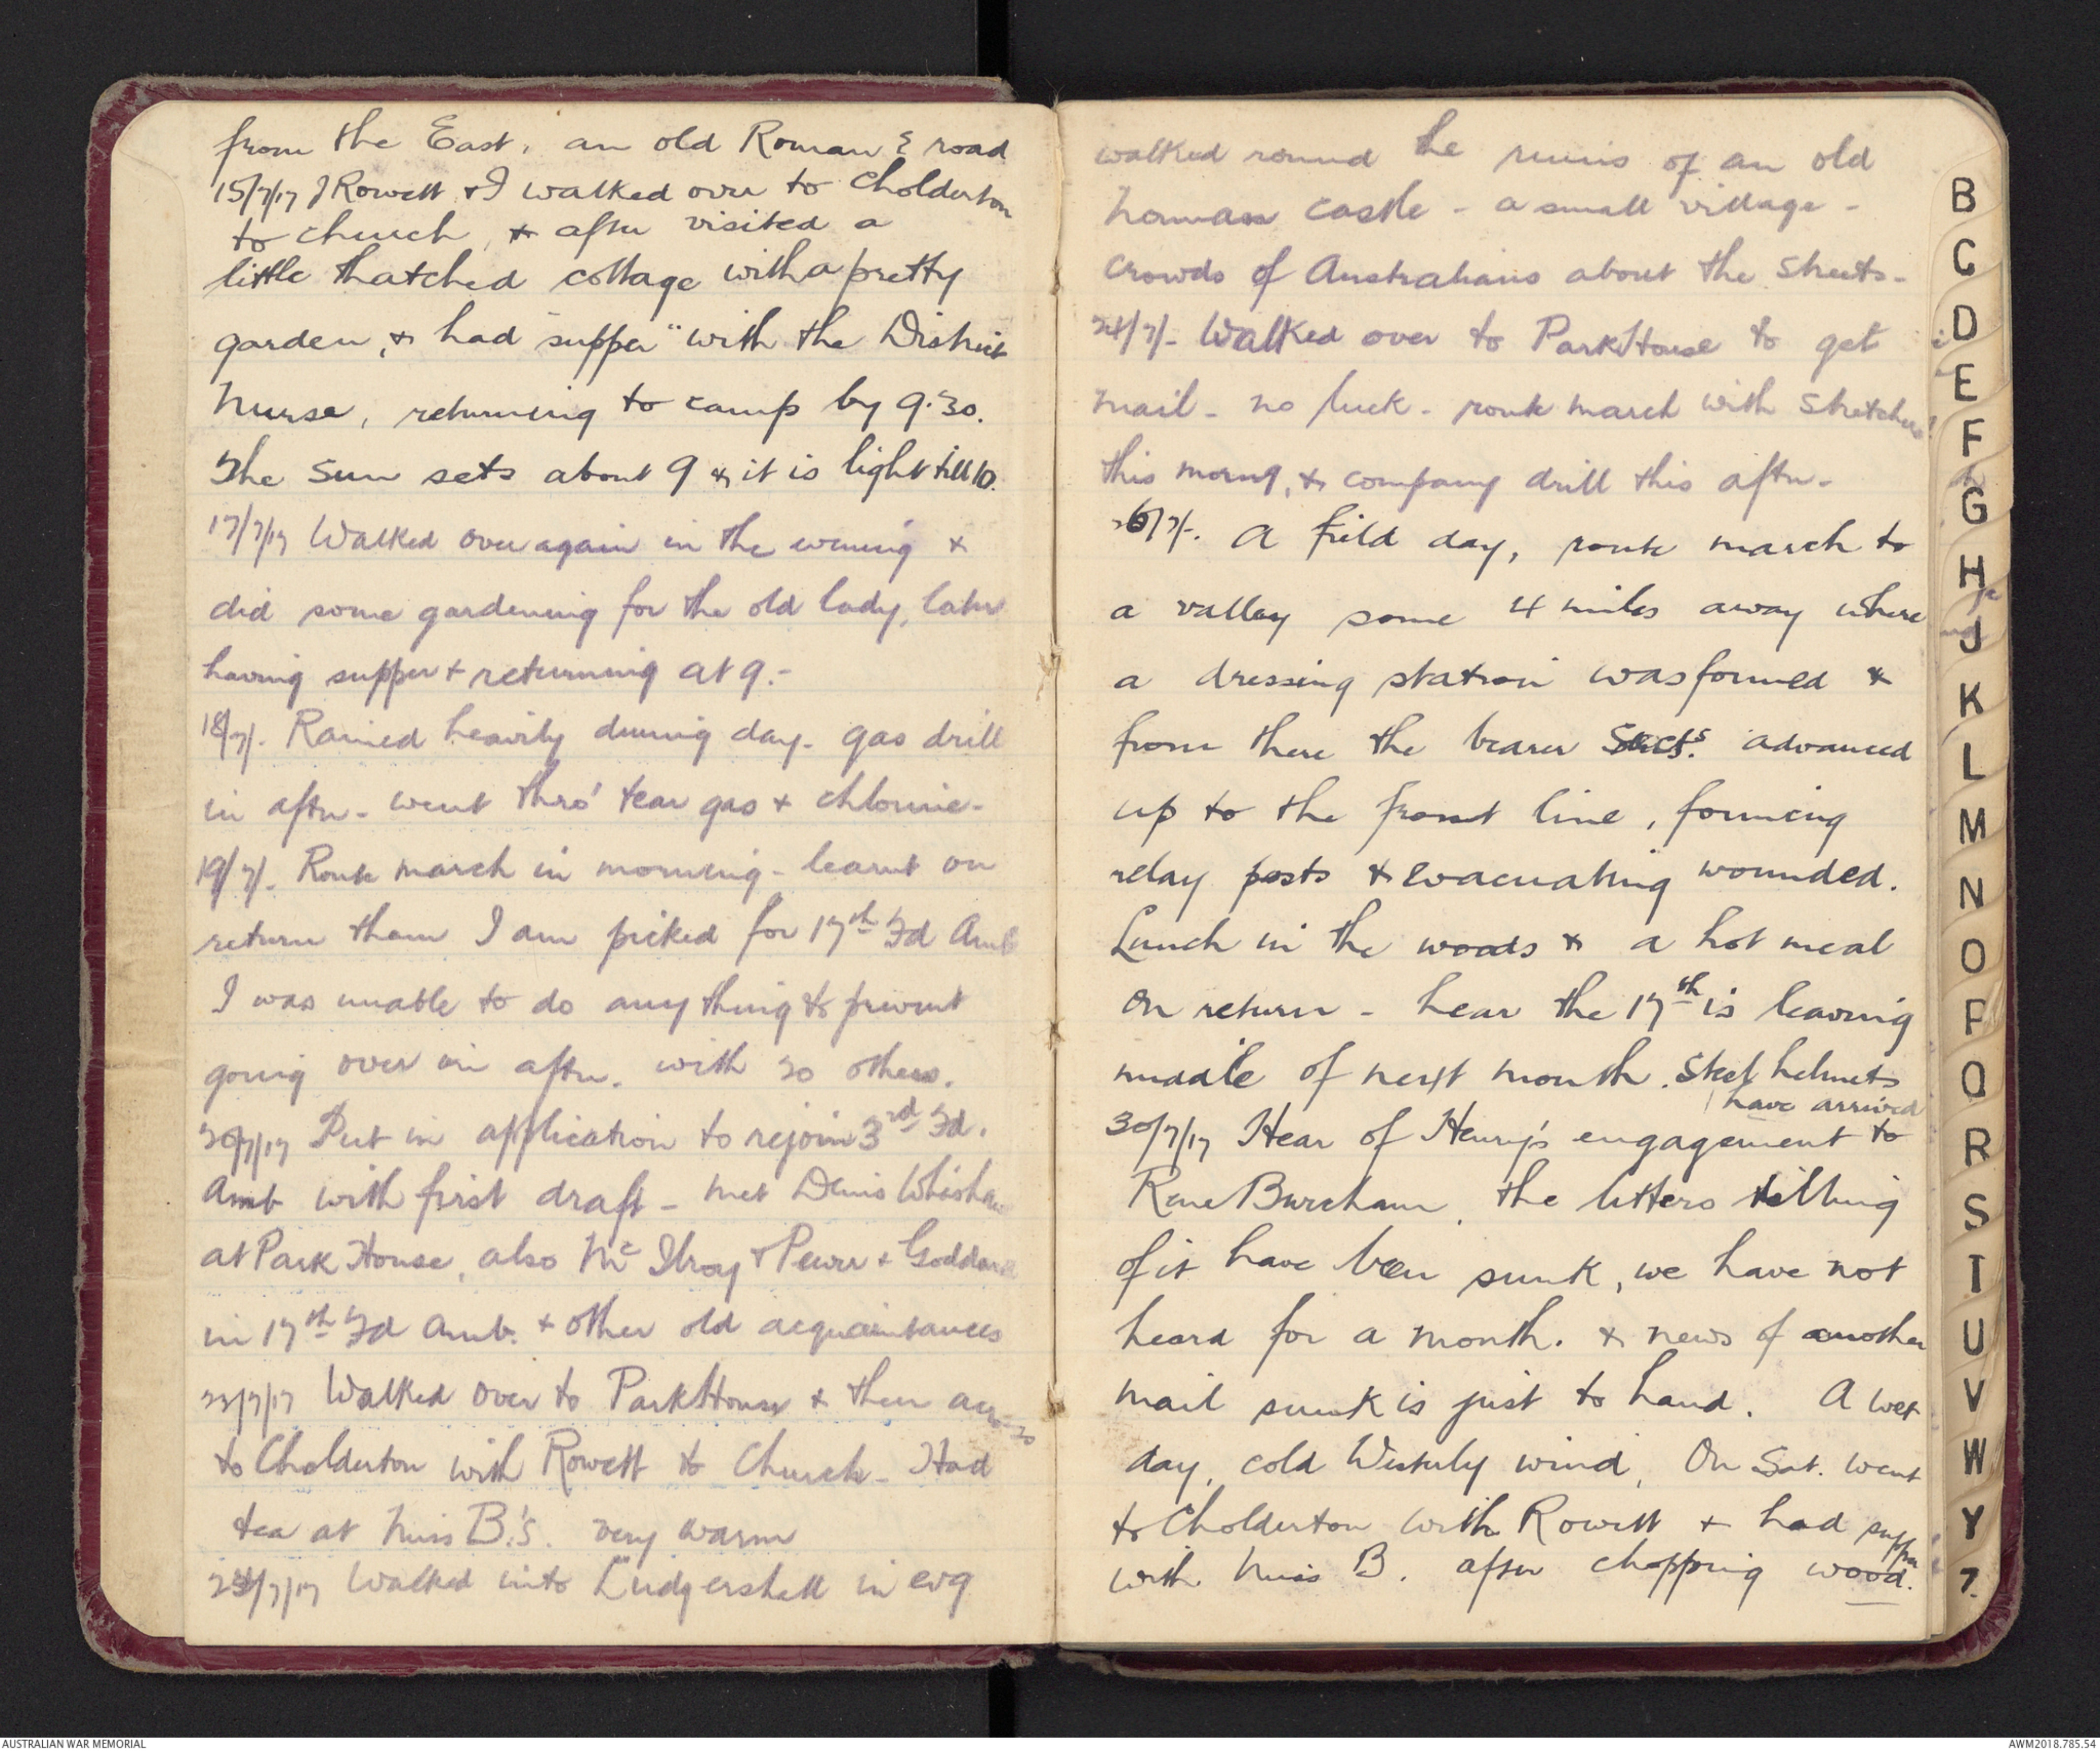 from the East, an old Roman ? road
15/7/17 J Rowett & I walked over to Cholderton
to church, & after visited a
little thatched cottage with a pretty
garden, & had "supper" with the District
Nurse, returning to camp by 9.30.
The sun sets about 9 & it is light till 10.
17/7/17 Walked over again in the evening &
did some gardening for the old lady, later
having supper & returning at 9.-
18/7/- Rained heavily during day - gas drill
in aftn - went thro' tear gas & chlorine -
19/7/- Route march in morning - learnt on
return tham I am picked for 17th Fd Amb
I was unable to do anything to prevent
going over in aftn. with 30 others.
20/7/17 Put in application to rejoin 3rd Fd.
Amb with first draft - met Denis Whishaw
at Park House, also Mc Ilroy & Pewer & Goddard
in 17th Fd Amb. & other old acquaintances
22/7/17 Walked over to Park House & then across
to Cholderton with Rowett to Church - Had
tea at Miss B.'s. very warm
23/7/17 Walked into Ludgershall in evg
walked round the ruins of an old
Norman castle - a small village -
crowds of Australians about the streets -
24/7/- Walked over to Park House to get
mail - no luck - route march with stretchers
this morng, & company drill this aftn -
26/7/-. A field day, route march to
a valley some 4 miles away where
a dressing station was formed &
from there the bearer Sects. advanced
up to the front line, forming
relay posts & evacuating wounded.
Lunch in the woods & a hot meal
on return - hear the 17th is leaving
middle of next month. Steel helmets
have arrived
30/7/17 Hear of Henry's engagement to
Rene Burcham, the letters telling
of it have been sunk, we have not
heard for a month. & news of another
mail sunk is just to hand. A wet
day, cold Westerly wind, On Sat. went
to Cholderton with Rowett & had supper
with Miss B. after chopping wood.
B
C
D
E
F
G
H
J
K
L
M
N
O
P
Q
R
S
T
U
V
W
Y
Z
AUSTRALIAN WAR MEMORIAL
AWM2018.785.54